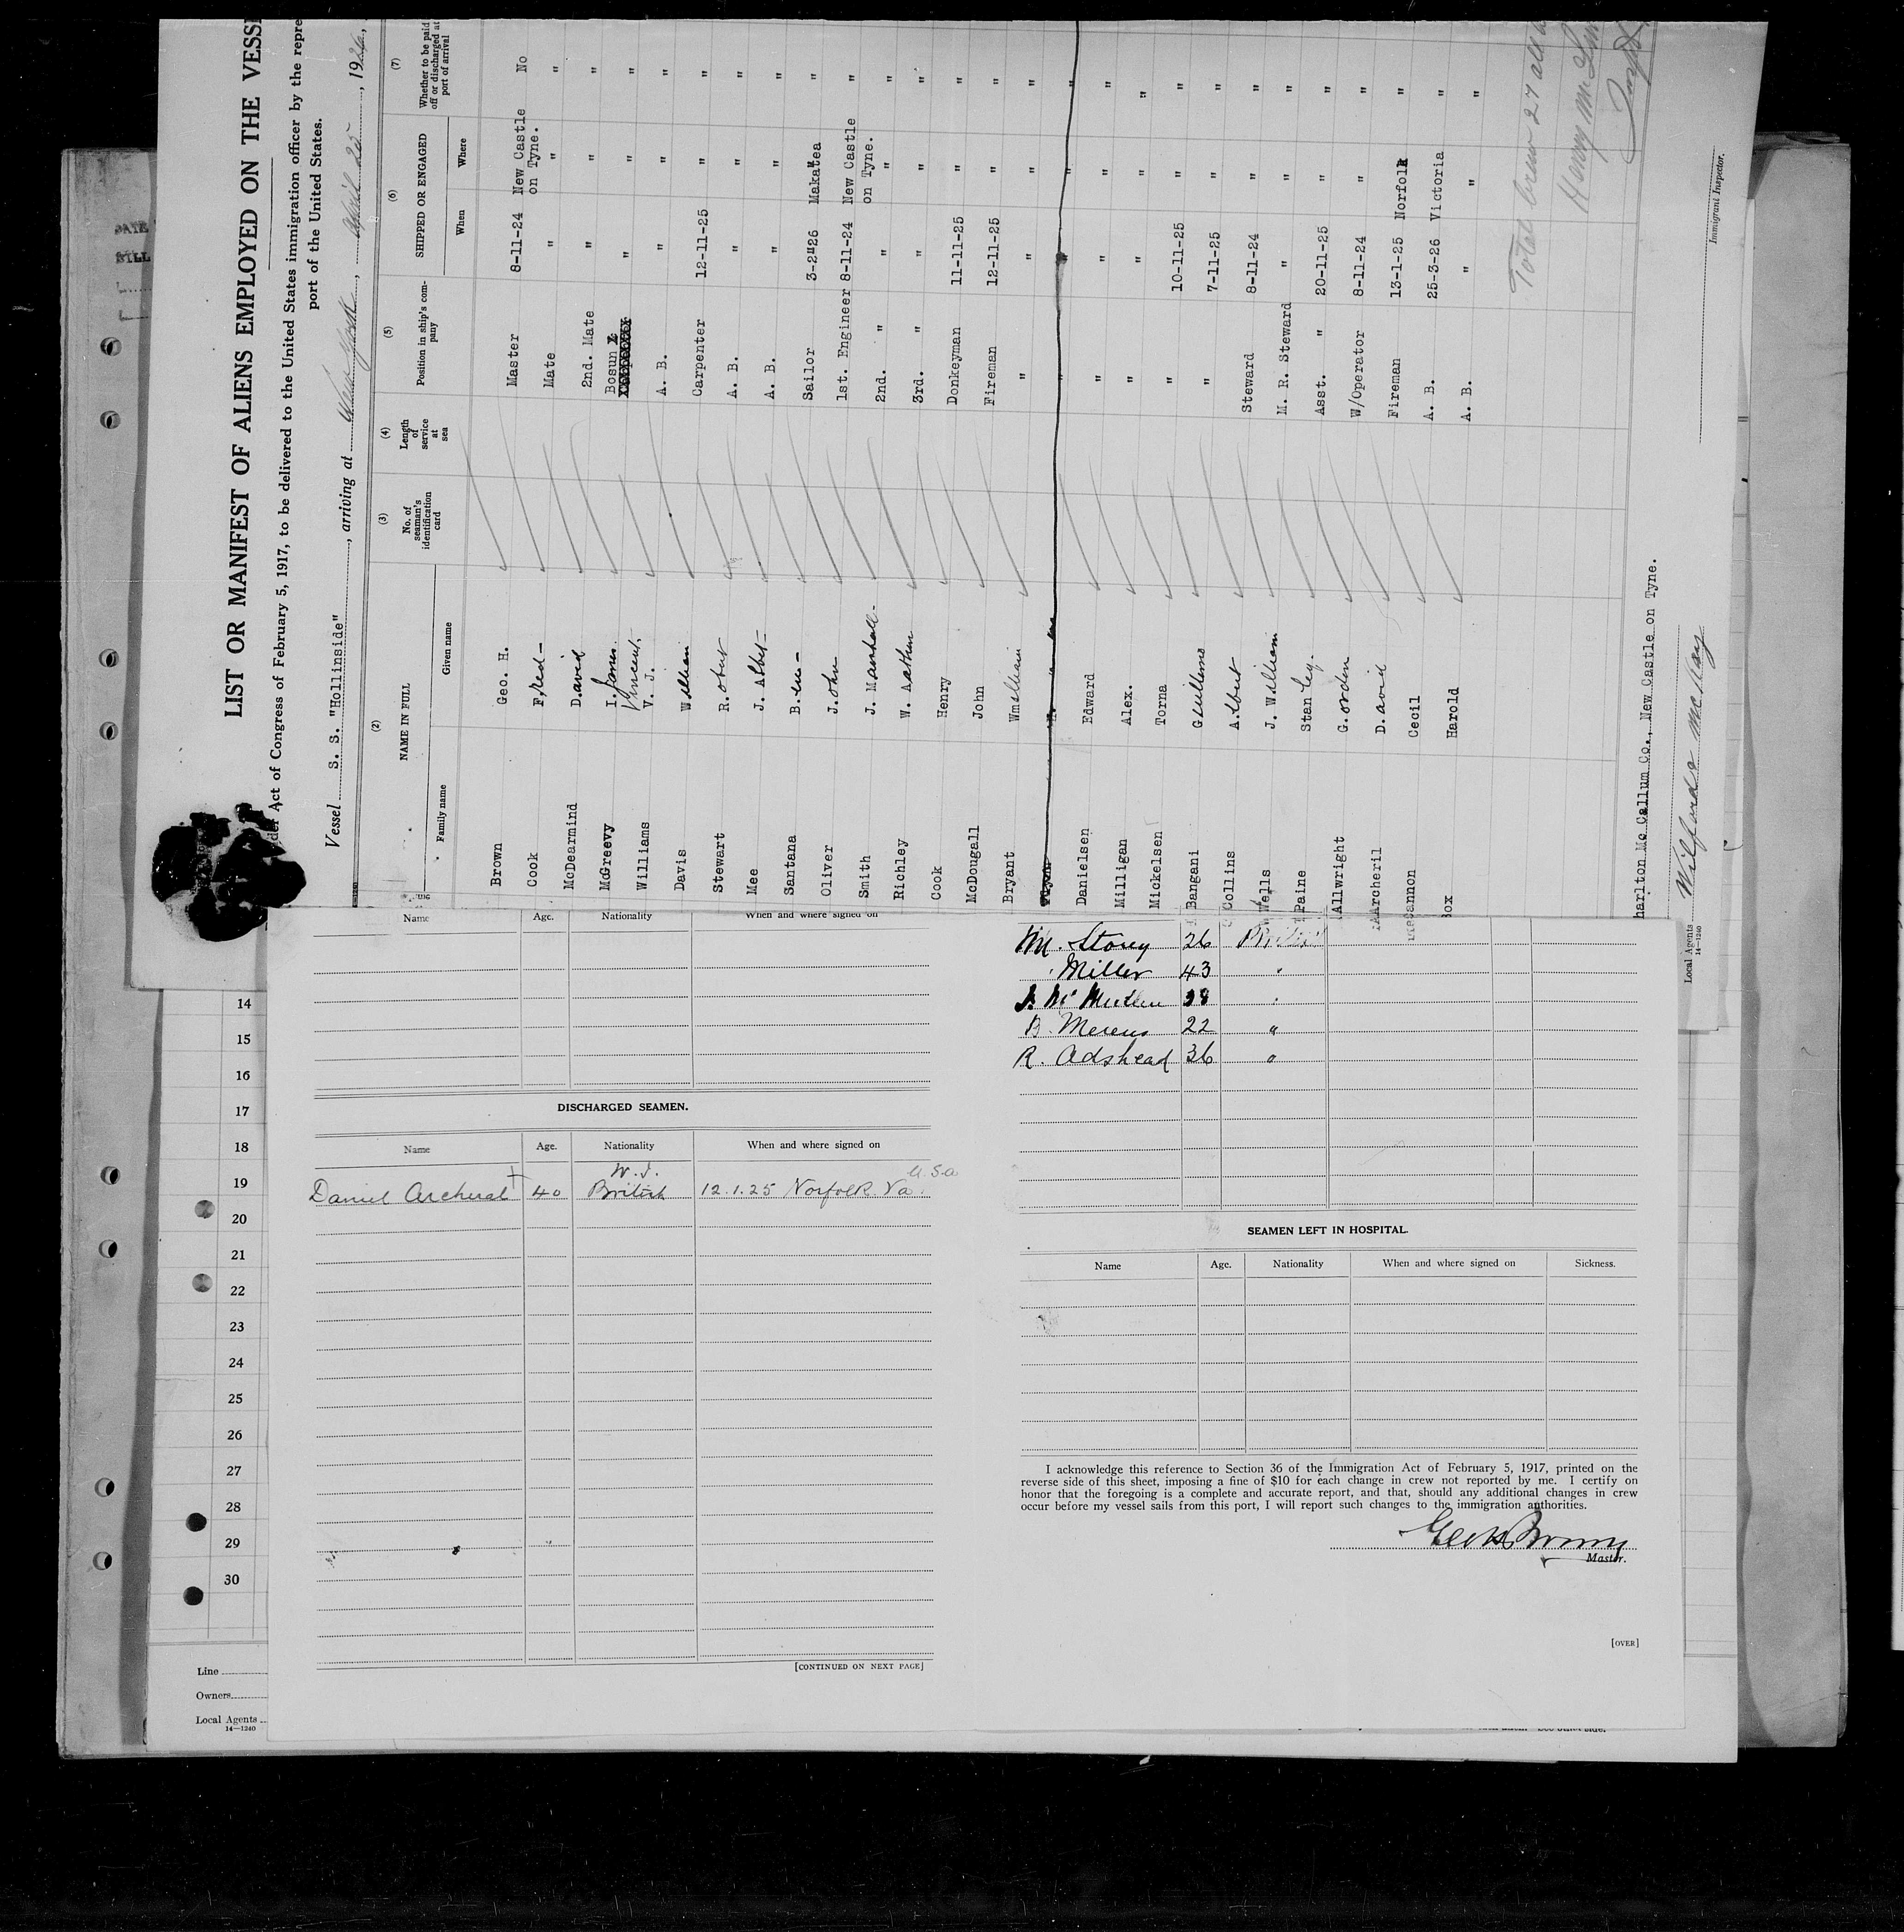 LIST OR MANIFEST OF ALIENS EMPLOYED ON THE VESS
Act of Congress of February 5, 1917, to be delivered to the United States immigration officer by the repre
port of the United States.
Vessel S. S. "Hollinside", arriving at New York, April 25, 1926,
(2) (3) (4) (5) (6) (7)
NAME IN FULL
Family name Given name
No. of seaman's identification card
Length of service at sea
Position in ship's company
SHIPPED OR ENGAGED
When Where
Whether to be paid off or discharged at port of arrival
Brown Geo. H. Master 8-11-24 New Castle on Tyne. No
Cook Fred Mate " " "
McDearmind David 2nd. Mate " " "
McGreevy I. James Bosun " " "
Williams Vincent. V. J. A. B. " " "
Davis William Carpenter 12-11-25 " "
Stewart Robert A. B. " " "
Mee J. Albert A. B. " " "
Santana Ben Sailor 3-2"26 Makatea "
Oliver John 1st. Engineer 8-11-24 New Castle on Tyne. "
Smith J. Marshall 2nd. " " " "
Richley W. Arthur 3rd. " " " "
Cook Henry Donkeyman 11-11-25 " "
McDougall John Fireman 12-11-25 " "
Bryant William " " " "
Danielsen Edward " " " "
Milligan Alex. " " " "
Mickelsen Torna " 10-11-25 " "
Bangani Gullems " 7-11-25 " "
Collins Albert Steward 8-11-24 " "
Wells J. William M. R. Steward " " "
Paine Stanley. Asst. " 20-11-25 " "
Allwright Gordon W/Operator 8-11-24 " "
Archeril David Fireman 13-1-25 Norfolk "
Cannon Cecil A. B. 25-3-26 Victoria "
ox Harold A. B. " " "
Total crew 27 all
Henry
Immigrant Inspector.
harlton Mc Callum Co., New Castle on Tyne.
Local Agents Wilford & McKay
14—1240
Name Age. Nationality When and where signed on
DISCHARGED SEAMEN.
Name Age. Nationality When and where signed on
W. I. U.S.A
Daniel Archeral 40 British 12.1.25 Norfolk Va.
[CONTINUED ON NEXT PAGE]
M. Storey 26 British
Miller 43 "
22 "
R. Adshead 36 "
SEAMEN LEFT IN HOSPITAL.
Name Age. Nationality When and where signed on Sickness.
I acknowledge this reference to Section 36 of the Immigration Act of February 5, 1917, printed on the
reverse side of this sheet, imposing a fine of $10 for each change in crew not reported by me. I certify on
honor that the foregoing is a complete and accurate report, and that, should any additional changes in crew
occur before my vessel sails from this port, I will report such changes to the immigration authorities.
Geo H Brown
Master.
[OVER]
14
15
16
17
18
19
20
21
22
23
24
25
26
27
28
29
30
Line
Owners
Local Agents
14—1240